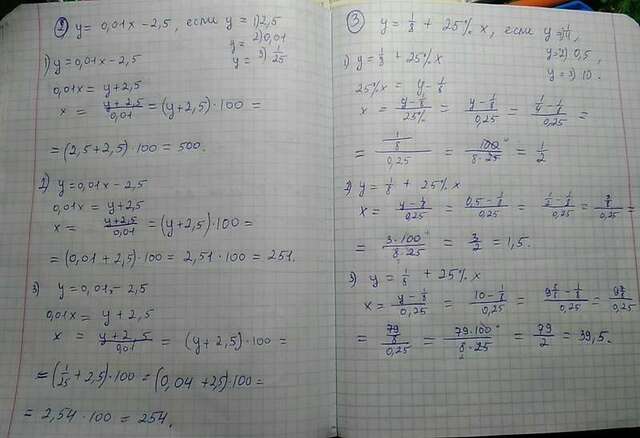 ② y = 0,01x - 2,5, если y = 1) 2,5
y = 2) 0,01
y = 3) 1/25
1) y = 0,01x - 2,5
0,01x = y + 2,5
x = (y + 2,5)/0,01 = (y + 2,5) · 100 =
= (2,5 + 2,5) · 100 = 500.
2) y = 0,01x - 2,5
0,01x = y + 2,5
x = (y + 2,5)/0,01 = (y + 2,5) · 100 =
= (0,01 + 2,5) · 100 = 2,51 · 100 = 251.
3) y = 0,01x - 2,5
0,01x = y + 2,5
x = (y + 2,5)/0,01 = (y + 2,5) · 100 =
= (1/25 + 2,5) · 100 = (0,04 + 2,5) · 100 =
= 2,54 · 100 = 254.
③ y = 1/8 + 25% x, если y = 1) 1/4,
y = 2) 0,5,
y = 3) 10.
1) y = 1/8 + 25% x
25% x = y - 1/8
x = (y - 1/8)/25% = (y - 1/8)/0,25 = (1/4 - 1/8)/0,25 =
= (1/8)/0,25 = 100/(8 · 25) = 1/2
2) y = 1/8 + 25% x
x = (y - 1/8)/0,25 = (0,5 - 1/8)/0,25 = (1/2 - 1/8)/0,25 = (3/8)/0,25 =
= (3 · 100)/(8 · 25) = 3/2 = 1,5.
3) y = 1/8 + 25% x
x = (y - 1/8)/0,25 = (10 - 1/8)/0,25 = (9 8/8 - 1/8)/0,25 = (9 7/8)/0,25
= (79/8)/0,25 = (79 · 100)/(8 · 25) = 79/2 = 39,5.